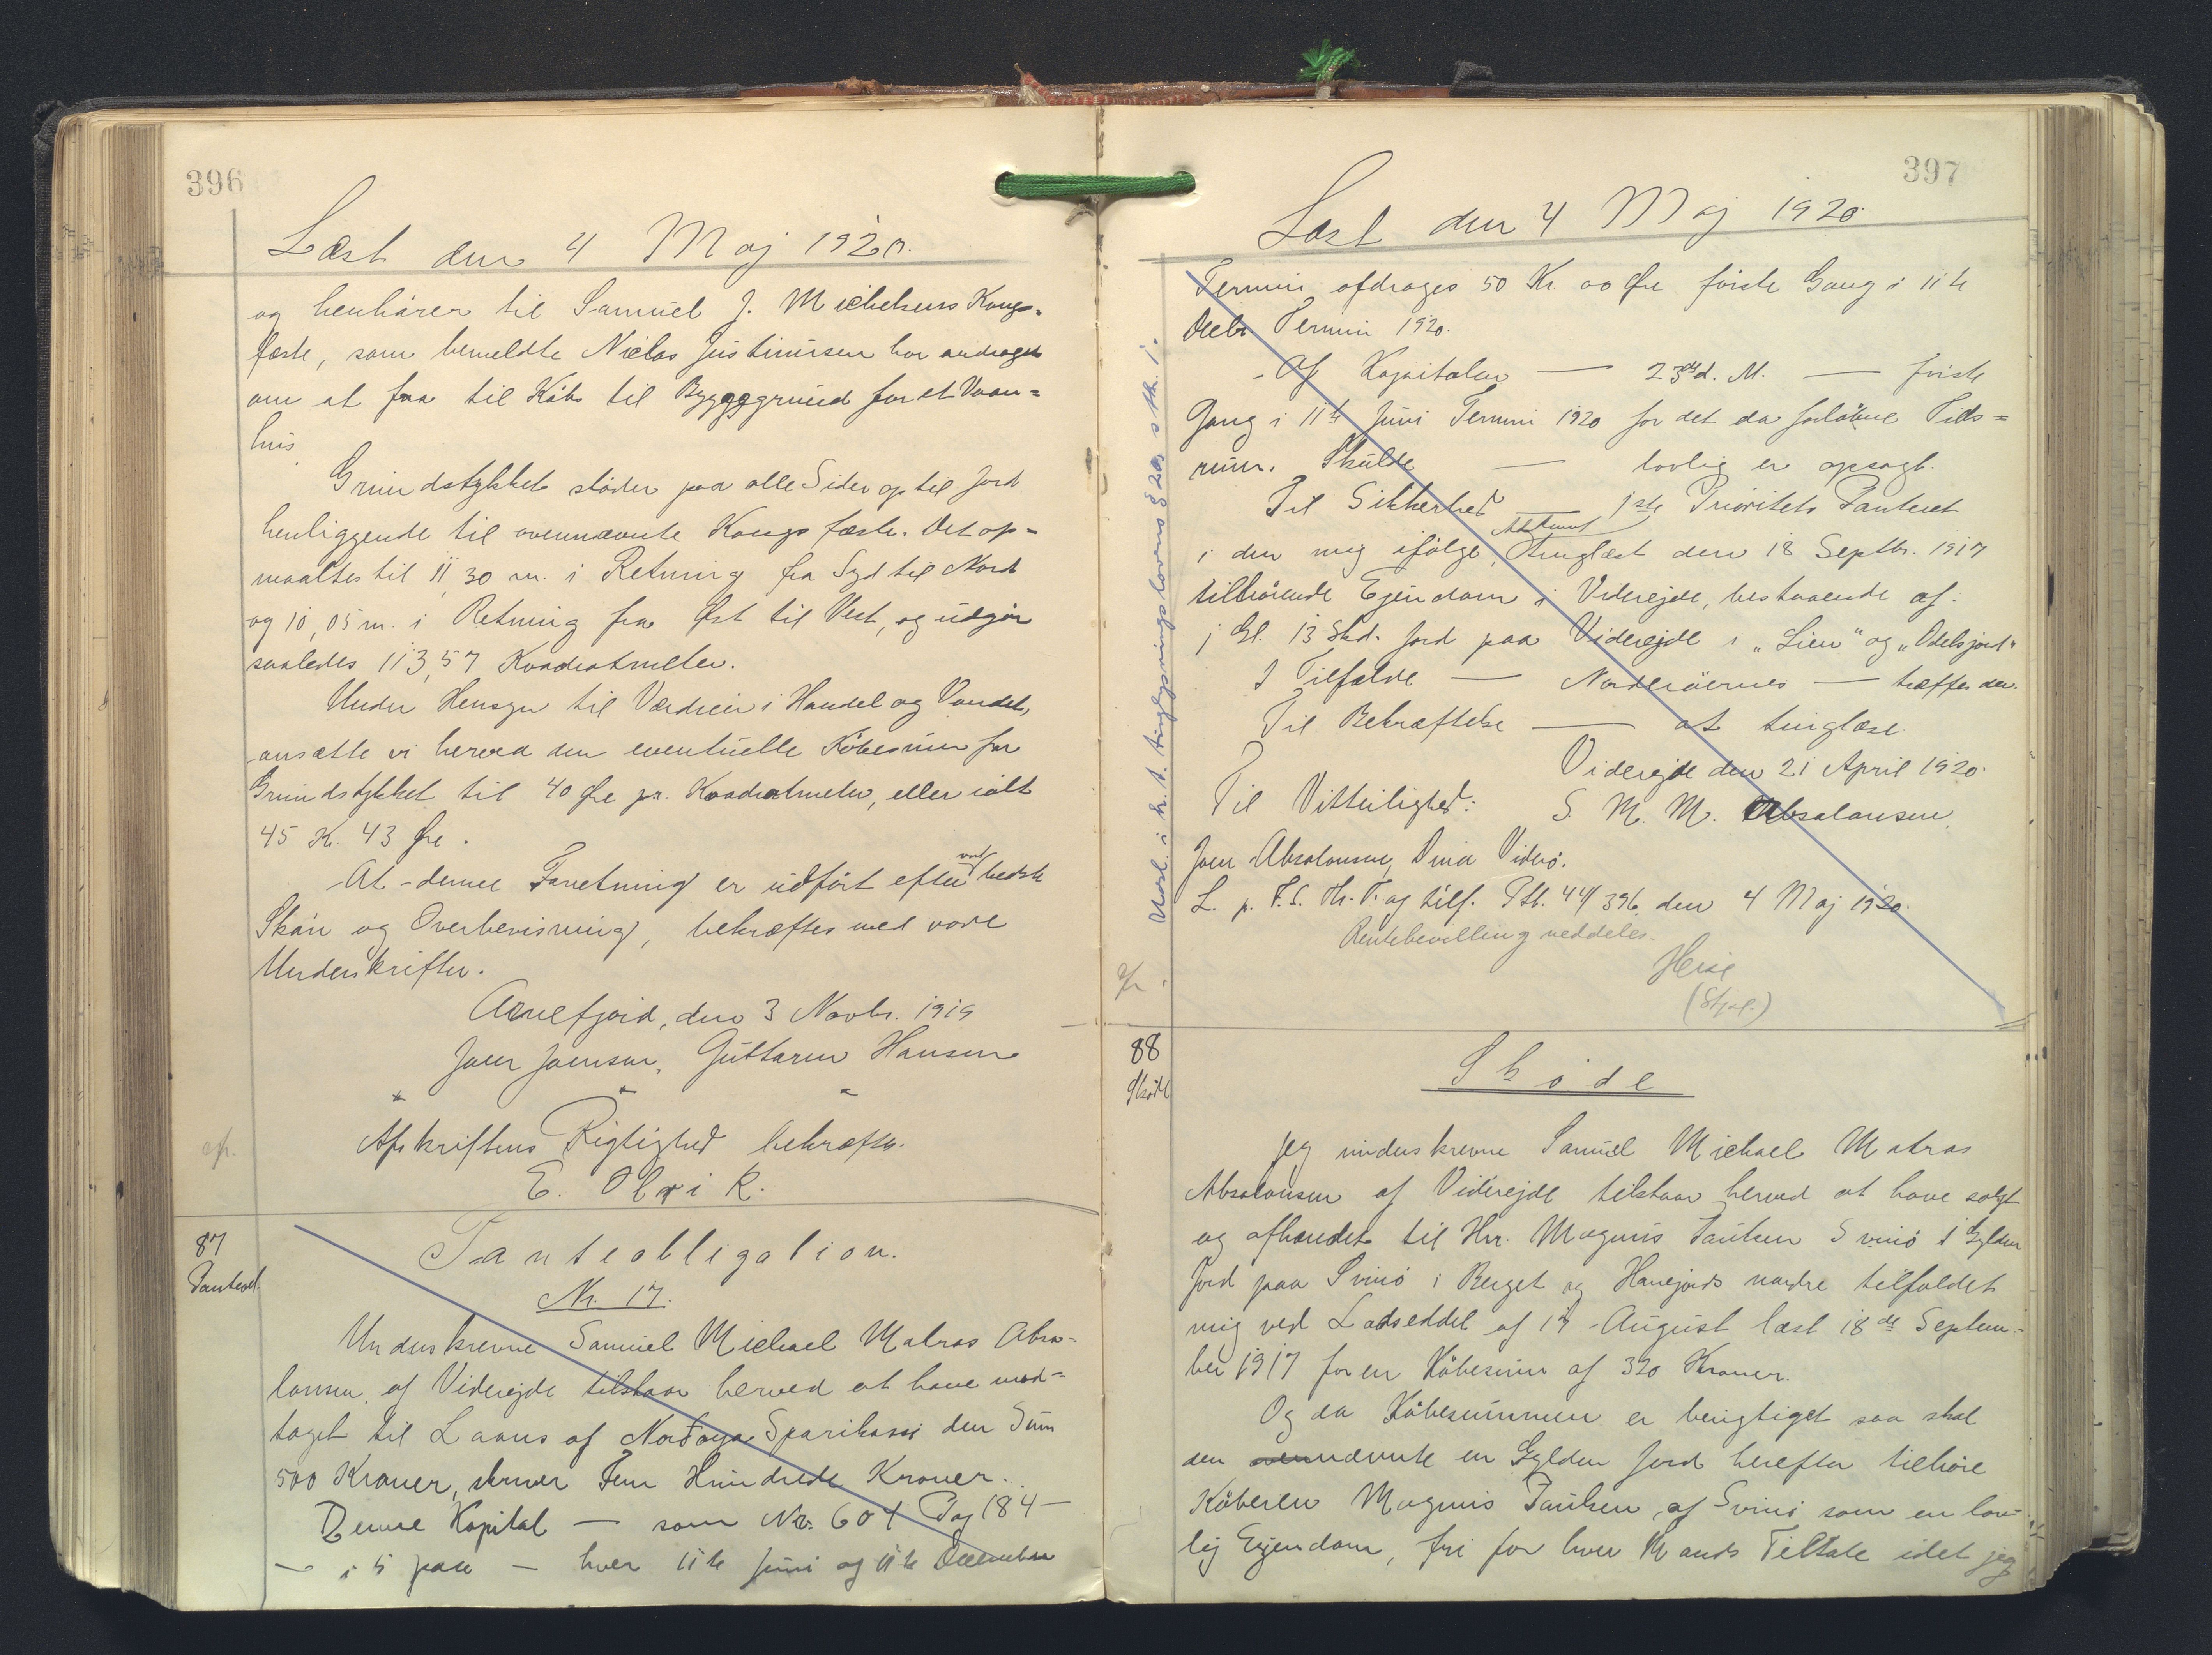 396
Læst den 4 Maj 1920.
og henhører til Samuel J. Michelsens Kongs-
fæste, som bemeldte Niclas Justinussen har andraget
om at faa til Købs til Byggegrund for et Vaan=
hus.
Grundstykket støder paa alle Sider op til Jord
henliggende til ovennævnte Kongsfæste. Det op=
maaltes til 11,30 m. i Retning fra Syd til Nord
og 10,05 m. i Retning fra Øst til Vest, og udgør
saaledes 113,57 Kvadratmeter.
Under Hensyn til Værdien i Handel og Vandel,
ansætte vi herved den eventuelle Købesum for
Grundstykket til 40 Øre pr. Kvadratmeter, eller ialt
45 K. 43 Øre.
At denne Forretning er udført efter vort bedste
Skøn og Overbevisning, bekræftes med vore
Underskrifter.
Arnefjord, den 3 Novbr. 1919
Joen Joensen, Guttorm Hansen
Afskriftens Rigtighed bekræftes.
E. Olrik.
87
Panteobl.
Panteobligation.
Nr. 17.
Underskrevne Samuel Michael Matras Absa-
lonsen, af Viderejde tilstaar herved at have mod=
taget til Laans af Norðoya Sparikassi den Sum
500 Kroner, skriver Fem Hundrede Kroner.
Denne Kapital — som Nr. 601 Pag 184 —
— i § paa — hver 11te Juni og 11te December
397
Læst den 4 Maj 1920
Termin afdrages 50 Kr. 00 Øre første Gang i 11te
Decbr. Termin 1920.
Af Kapitalen — — første
Gang i 11te Juni Termin 1920 for det da forløbne Tids=
rum. Skulde — lovlig er opsagt.
Til Sikkerhed — 1ste Prioritets Panteret
i den mig ifølge Adkomst tinglæst den 18 Septbr. 1917
tilhørende Ejendom i Viderejde, bestaaende af:
1 Gl. 13 Skd. Jord paa Viderejde i "Lien" og "Odelsjord"
I Tilfælde — Norderøernes — træffes der.
Til Bekræftelse — at tinglæse.
Viderejde den 21 April 1920.
Til Vitterlighed: S. M. M. Absalonsen.
Joen Absalonsen, Viderø.
L. p. F. S. Hr. T. og tilf. Ptb. 44/396 den 4 Maj 1920.
Rentebevilling meddeles.
Heise
88
Skøde
Skøde
Jeg underskrevne Samuel Michael Matras
Absalonsen af Viderejde tilstaar herved at have solgt
og afhændet til Hr. Magnus Paulsen Svinø 1 Gylden
Jord paa Svinø i Berget og Havejords nordre tilfaldet
mig ved Lodseddel af 17 August læst 18de Septem-
ber 1917 for en Købesum af 320 Kroner.
Og da Købesummen er berigtiget saa skal
den nævnte en Gylden Jord herefter tilhøre
Køberen Magnus Paulsen, af Svinø som en lov-
lig Ejendom, fri for hver Mands Tiltale idet jeg